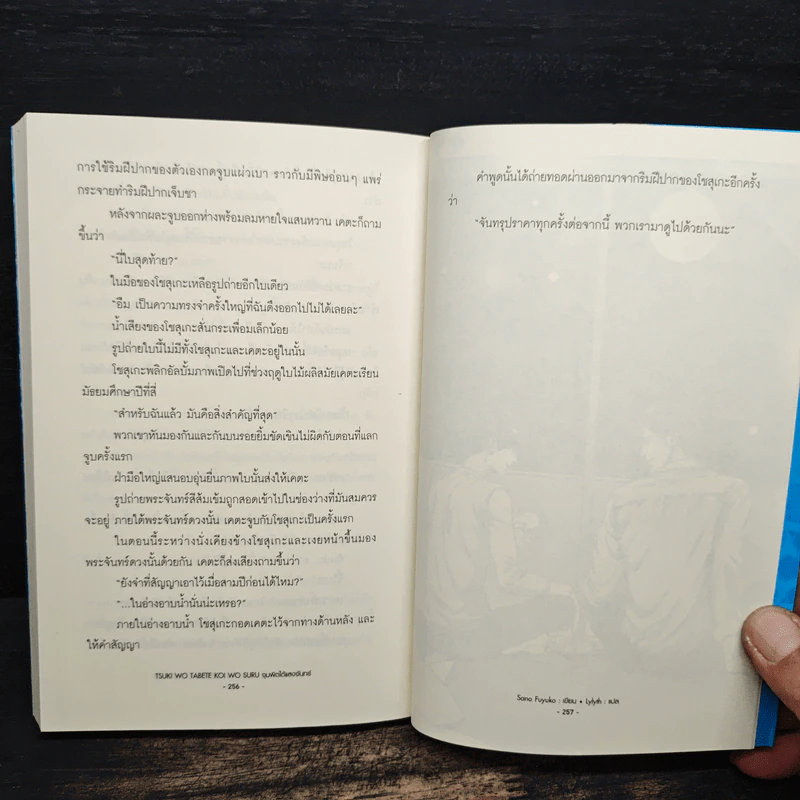 การใช้ริมฝีปากของตัวเองกดจูบแผ่วเบา ราวกับมีพิษอ่อนๆ แพร่
กระจายทำริมฝีปากเจ็บชา
หลังจากผละจูบออกห่างพร้อมลมหายใจแสนหวาน เคตะก็ถาม
ขึ้นว่า
"นี่ใบสุดท้าย?"
ในมือของโชสุเกะเหลือรูปถ่ายอีกใบเดียว
"อืม เป็นความทรงจำครั้งใหญ่ที่ฉันดึงออกไปไม่ได้เลยละ"
น้ำเสียงของโชสุเกะสั่นกระเพื่อมเล็กน้อย
รูปถ่ายใบนี้ไม่มีทั้งโชสุเกะและเคตะอยู่ในนั้น
โชสุเกะพลิกอัลบั้มภาพเปิดไปที่ช่วงฤดูใบไม้ผลิสมัยเคตะเรียน
มัธยมศึกษาปีที่สี่
"สำหรับฉันแล้ว มันคือสิ่งสำคัญที่สุด"
พวกเขาหันมองกันและกันบนรอยยิ้มขัดเขินไม่ผิดกับตอนที่แลก
จูบครั้งแรก
ฝ่ามือใหญ่แสนอบอุ่นยื่นภาพใบนั้นส่งให้เคตะ
รูปถ่ายพระจันทร์สีส้มเข้มถูกสอดเข้าไปในช่องว่างที่มันสมควร
จะอยู่ ภายใต้พระจันทร์ดวงนั้น เคตะจูบกับโชสุเกะเป็นครั้งแรก
ในตอนนี้ระหว่างนั่งเคียงข้างโชสุเกะและเงยหน้าขึ้นมอง
พระจันทร์ดวงนั้นด้วยกัน เคตะก็ส่งเสียงถามขึ้นว่า
"ยังจำที่สัญญาเอาไว้เมื่อสามปีก่อนได้ไหม?"
"...ในอ่างอาบน้ำนั่นน่ะเหรอ?"
ภายในอ่างอาบน้ำ โชสุเกะกอดเคตะไว้จากทางด้านหลัง และ
ให้คำสัญญา
TSUKI WO TABETE KOI WO SURU จุมพิตใต้แสงจันทร์
- 256 -
คำพูดนั้นได้ถ่ายทอดผ่านออกมาจากริมฝีปากของโชสุเกะอีกครั้ง
ว่า
"จันทรุปราคาทุกครั้งต่อจากนี้ พวกเรามาดูไปด้วยกันนะ"
Sano Fuyuko : เขียน • Lylyth : แปล
- 257 -